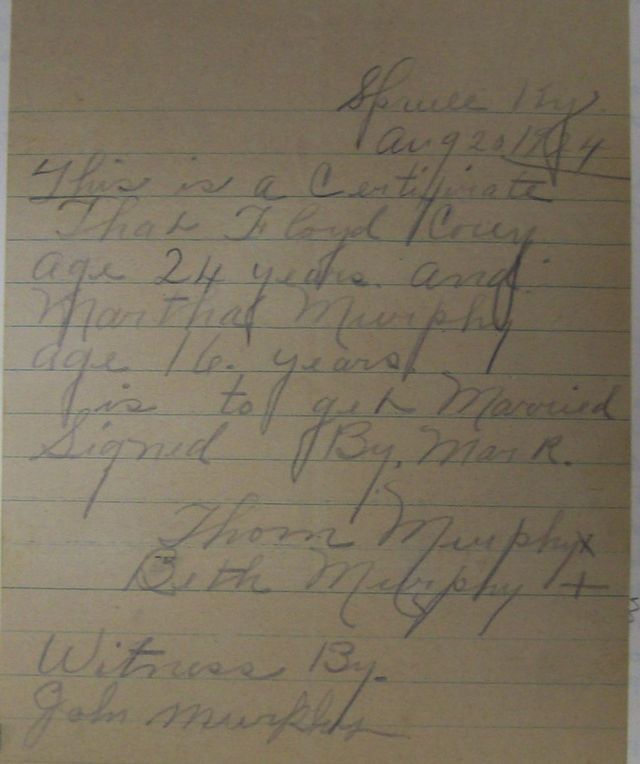 Spruce Ky.
Aug 20 1924
This is a Certificate
That Floyd Coury
age 24 years. and
Martha Murphy
age 16. years
is to get Married
Signed By. Mark.
Thom Murphy x
Beth Murphy +
Witness By.
John Murphy